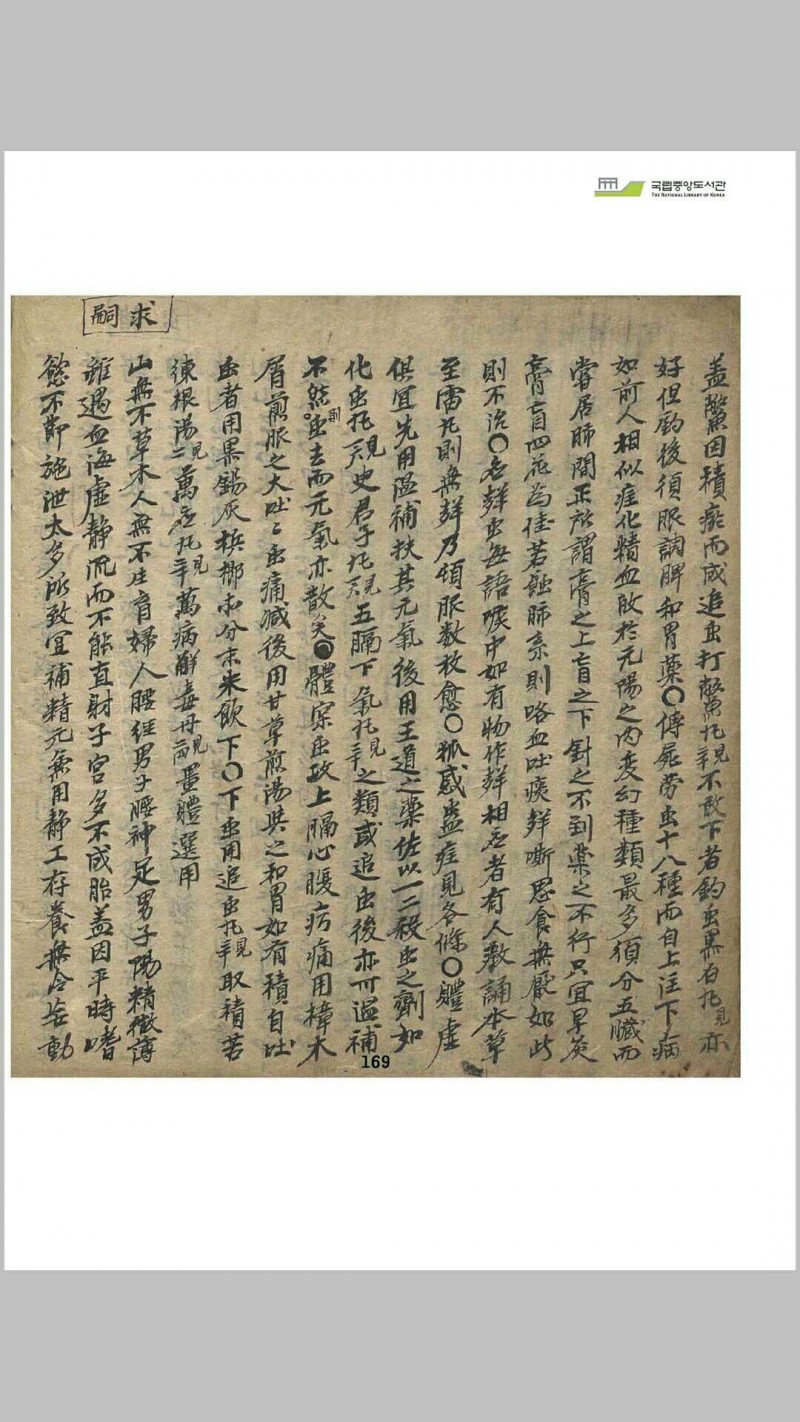 국립중앙도서관
THE NATIONAL LIBRARY OF KOREA
求嗣
盖鱉因積瘀而成追虫打鱉丸見辛不敢下者釣虫黑白丸見亦
好但釣後須服調脾和胃藥〇傳屍劳虫十八種而自上注下病
如前人相似症化精血敀於元陽之內变幻種類最多須分五臟而
甞居肺間正所謂膏之上盲之下針之不到藥之不行只宜早灸
膏盲四花為佳若蝕肺系則咯血吐痰聲嘶思食無厭如此
則不治〇应聲虫每語喉中如有物作聲相应者有人教誦本草
至雷丸則無聲乃頓服数枚愈〇狐惑蟲症見各條〇體虛
俱宜先用温補扶其元氣後用王道之藥佐以一二殺虫之劑如
化虫丸見史君子丸見五膈下氣丸見辛之類或追虫後亦可温補
不然則虫去而元氣亦散矣〇體宲虫攻上膈心腹疠痛用樟木
屑煎服之大吐〻虫痛减後用甘草煎湯與之和胃如有積自吐
虫者用黑錫灰梹榔ホ分末米飮下〇下虫用追虫丸見辛取積若
楝根湯見二萬应丸見辛萬病觧毒丹見量體選用
山無不草木人無不生育婦人腰經男子腰神足男子陽精微薄
雖過血海虛静流而不能直射子宮多不成胎盖因平時嗜
慾不節施泄太多所致宜補精元兼用静工存養無令妄動
169